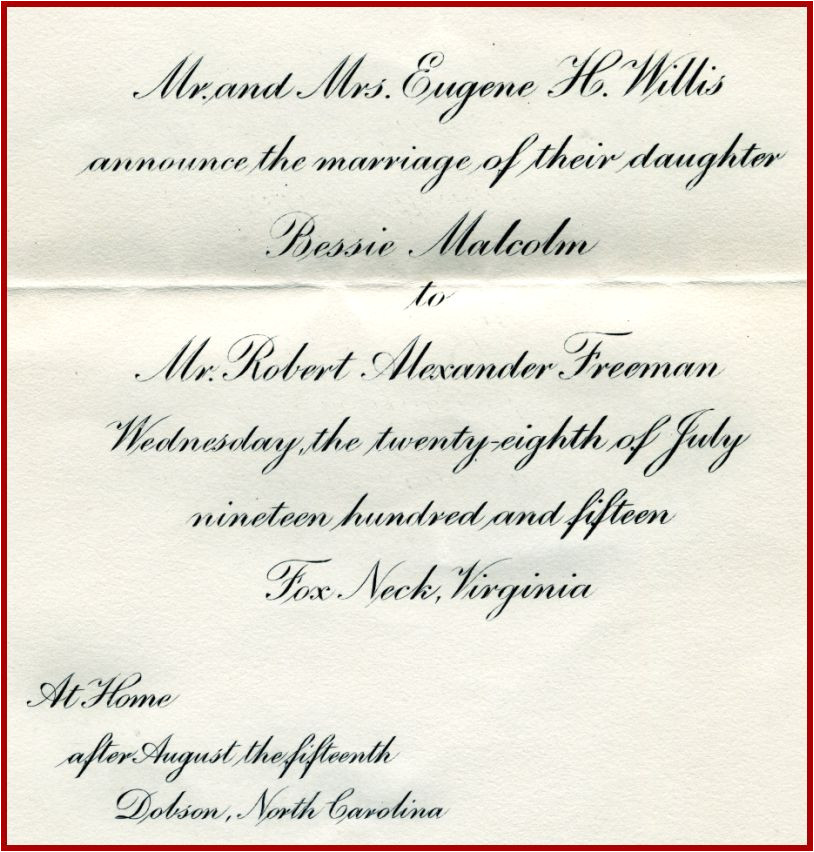 Mr. and Mrs. Eugene H. Willis
announce the marriage of their daughter
Bessie Malcolm
to
Mr. Robert Alexander Freeman
Wednesday, the twenty-eighth of July
nineteen hundred and fifteen
Fox Neck, Virginia
At Home
after August the fifteenth
Dobson, North Carolina